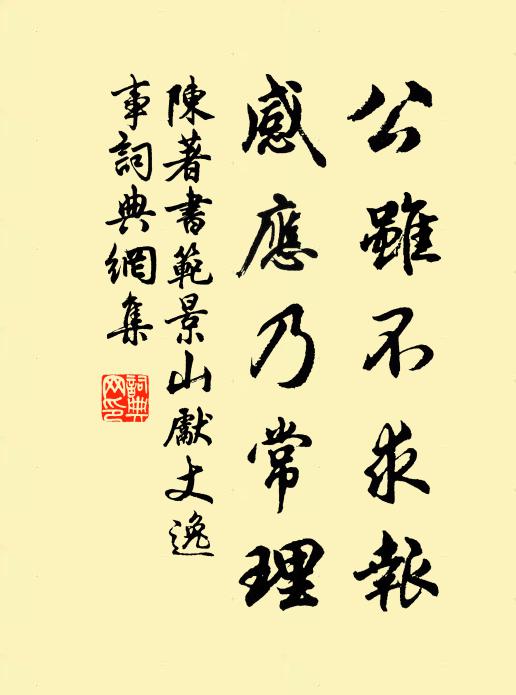 公雖不求報
感應乃常理
陳著書範景山獻丈逸
事詞典網集
詞典
网印